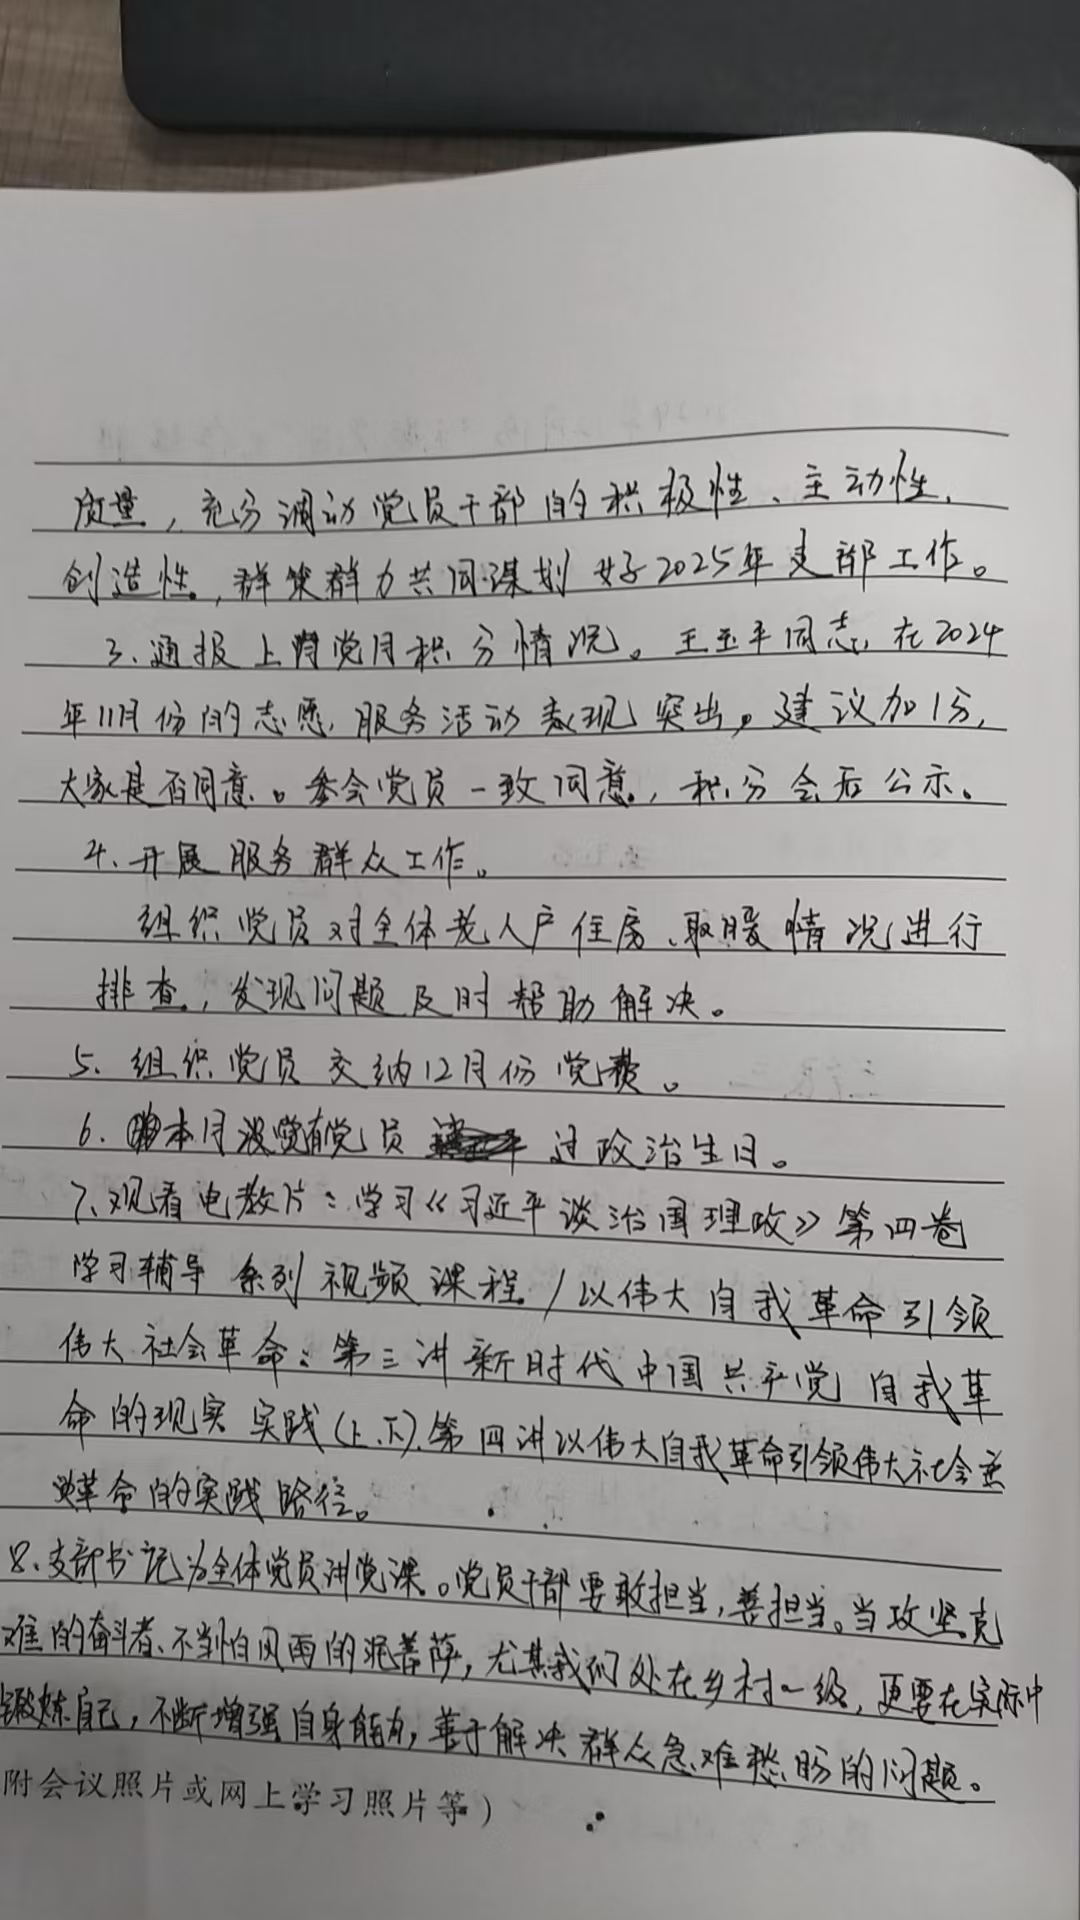 质量，充分调动党员干部的积极性、主动性、
创造性，群策群力共同谋划好2025年支部工作。
3、通报上月党员积分情况。王玉平同志，在2024
年11月份的志愿服务活动表现突出，建议加1分，
大家是否同意。参会党员一致同意，积分会后公示。
4、开展服务群众工作。
组织党员对全体老人户住房、取暖情况进行
排查，发现问题及时帮助解决。
5、组织党员交纳12月份党费。
6、本月没有党员过政治生日。
7、观看电教片：学习《习近平谈治国理政》第四卷
学习辅导系列视频课程/以伟大自我革命引领
伟大社会革命：第三讲新时代中国共产党自我革
命的现实实践(上、下)、第四讲以伟大自我革命引领伟大社会
革命的实践路径。
8、支部书记为全体党员讲党课。党员干部要敢担当，善担当。当攻坚克
难的奋斗者、不当怕风雨的泥菩萨，尤其我们处在乡村一级，更要在实际中
锻炼自己，不断增强自身能力，善于解决群众急难愁盼的问题。
附会议照片或网上学习照片等）